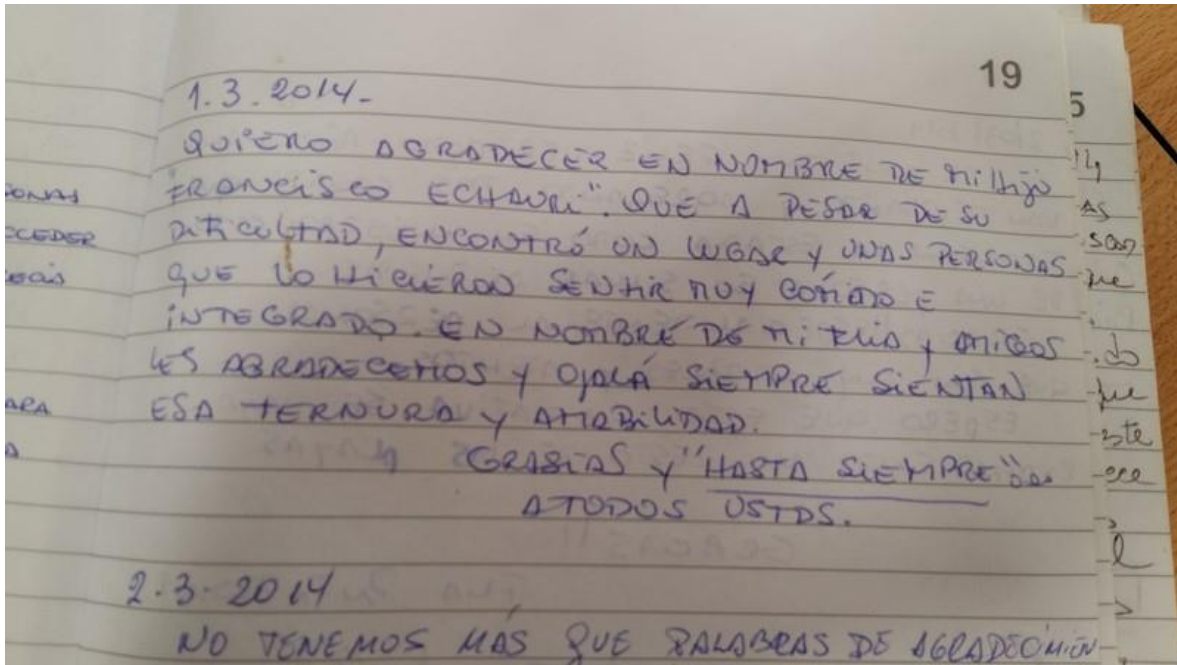 19
1.3.2014-
QUIERO AGRADECER EN NOMBRE DE MI HIJO
FRANCISCO ECHAURI". QUE A PESAR DE SU
DIFICULTAD, ENCONTRÓ UN LUGAR Y UNAS PERSONAS
QUE LO HICIERON SENTIR MUY CÓMODO E
INTEGRADO. EN NOMBRE DE MI FLIA Y AMIGOS
LES AGRADECEMOS Y OJALÁ SIEMPRE SIENTAN
ESA TERNURA Y AMABILIDAD.
GRASIAS Y "HASTA SIEMPRE"
A TODOS USTDS.
2.3.2014
NO TENEMOS MÁS QUE PALABRAS DE AGRADECIMIEN-
ONAS
CCEDER
ARA
A
5
AS
que
do
que
ste